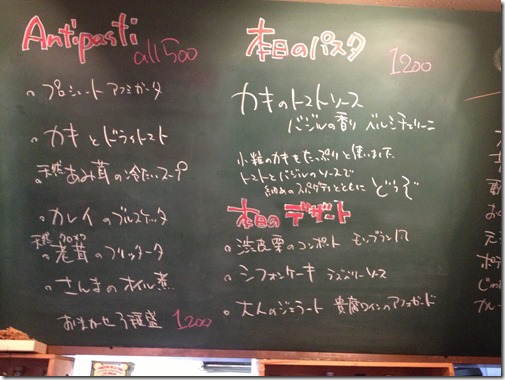 Antipasti
all 500
。プロシュート アフミカータ
。カキとドライトマト
。天然あみ茸の冷たいスープ
。カレイのブルスケッタ
。老茸のフリッタータ
。さんまのオイル煮
おまかせ3種盛 1200
本日のパスタ
1200
カキのトマトソース
バジルの香り ベルミチェリーニ
小粒のカキをたっぷりと使いました
トマトとバジルのソースで
細めのスパゲティとともに どうぞ
本日のデザート
。渋皮栗のコンポート モンブラン風
。シフォンケーキ ラズベリーソース
。大人のジェラート 貴腐ワインのアフォガード